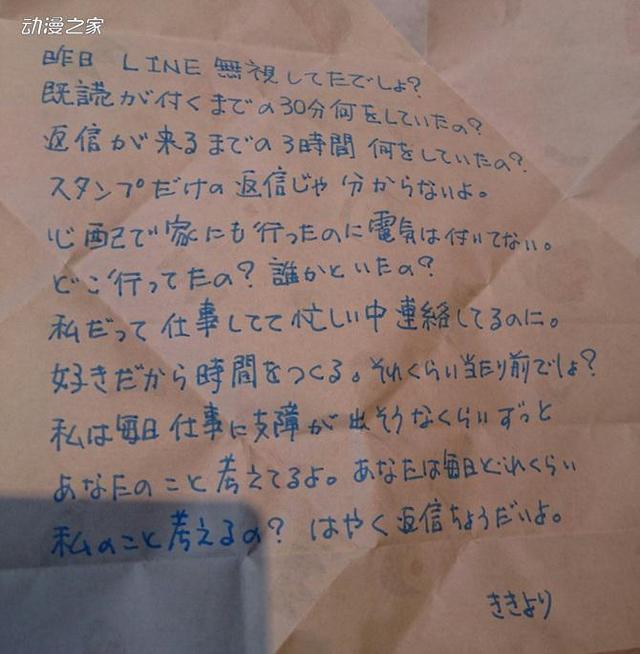 动漫之家
昨日 LINE 無視してたでしょ?
既読が付くまでの30分何をしていたの?
返信が来るまでの3時間 何をしていたの?
スタンプだけの返信じゃ 分からないよ。
心配で家にも行ったのに電気は付いてない。
どこ行ってたの? 誰かといたの?
私だって 仕事してて 忙しい中 連絡してるのに。
好きだから時間をつくる。それくらい当たり前でしょ?
私は毎日 仕事に支障が 出そうなくらい ずっと
あなたのこと考えてるよ。 あなたは毎日どれくらい
私のこと考えるの? はやく返信ちょうだいよ。
ききより